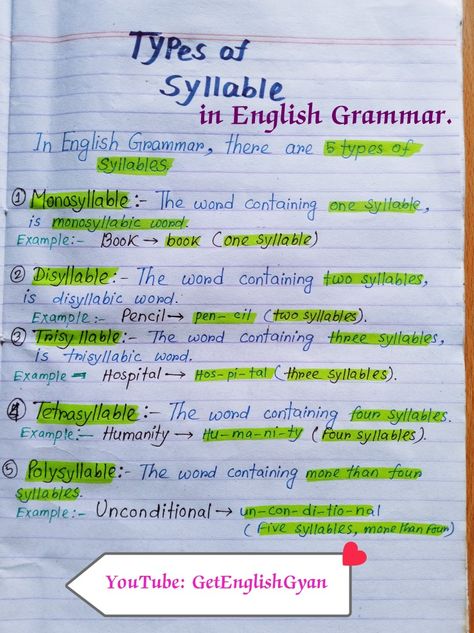 Types of
Syllable
in English Grammar.
In English Grammar, there are 5 types of
Syllables.
① Monosyllable :- The word containing one syllable,
is monosyllabic word.
Example:- Book → book (one syllable)
② Disyllable :- The word containing two syllables,
is disyllabic word.
Example:- Pencil → pen-cil (two syllables).
③ Trisyllable :- The word containing three syllables,
is trisyllabic word.
Example - Hospital → Hos-pi-tal (three syllables).
④ Tetrasyllable :- The word containing four syllables.
Example:- Humanity → Hu-ma-ni-ty (four syllables).
⑤ Polysyllable:- The word containing more than four
syllables.
Example:- Unconditional → un-con-di-tio-nal
(five syllables, more than four)
YouTube: GetEnglishGyan